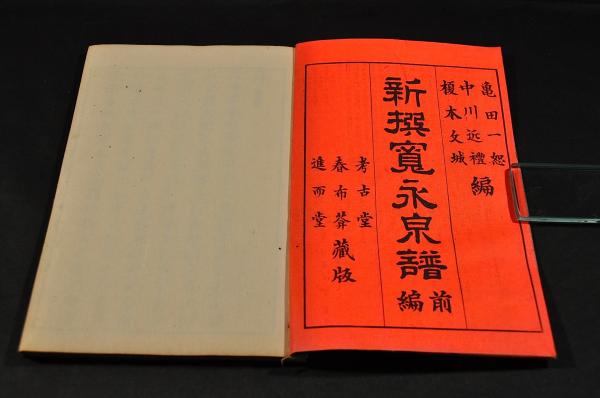 亀田一恕
中川近禮
榎本文城
編
新撰寛永泉譜
前編
考古堂
春布莽
進而堂
藏版